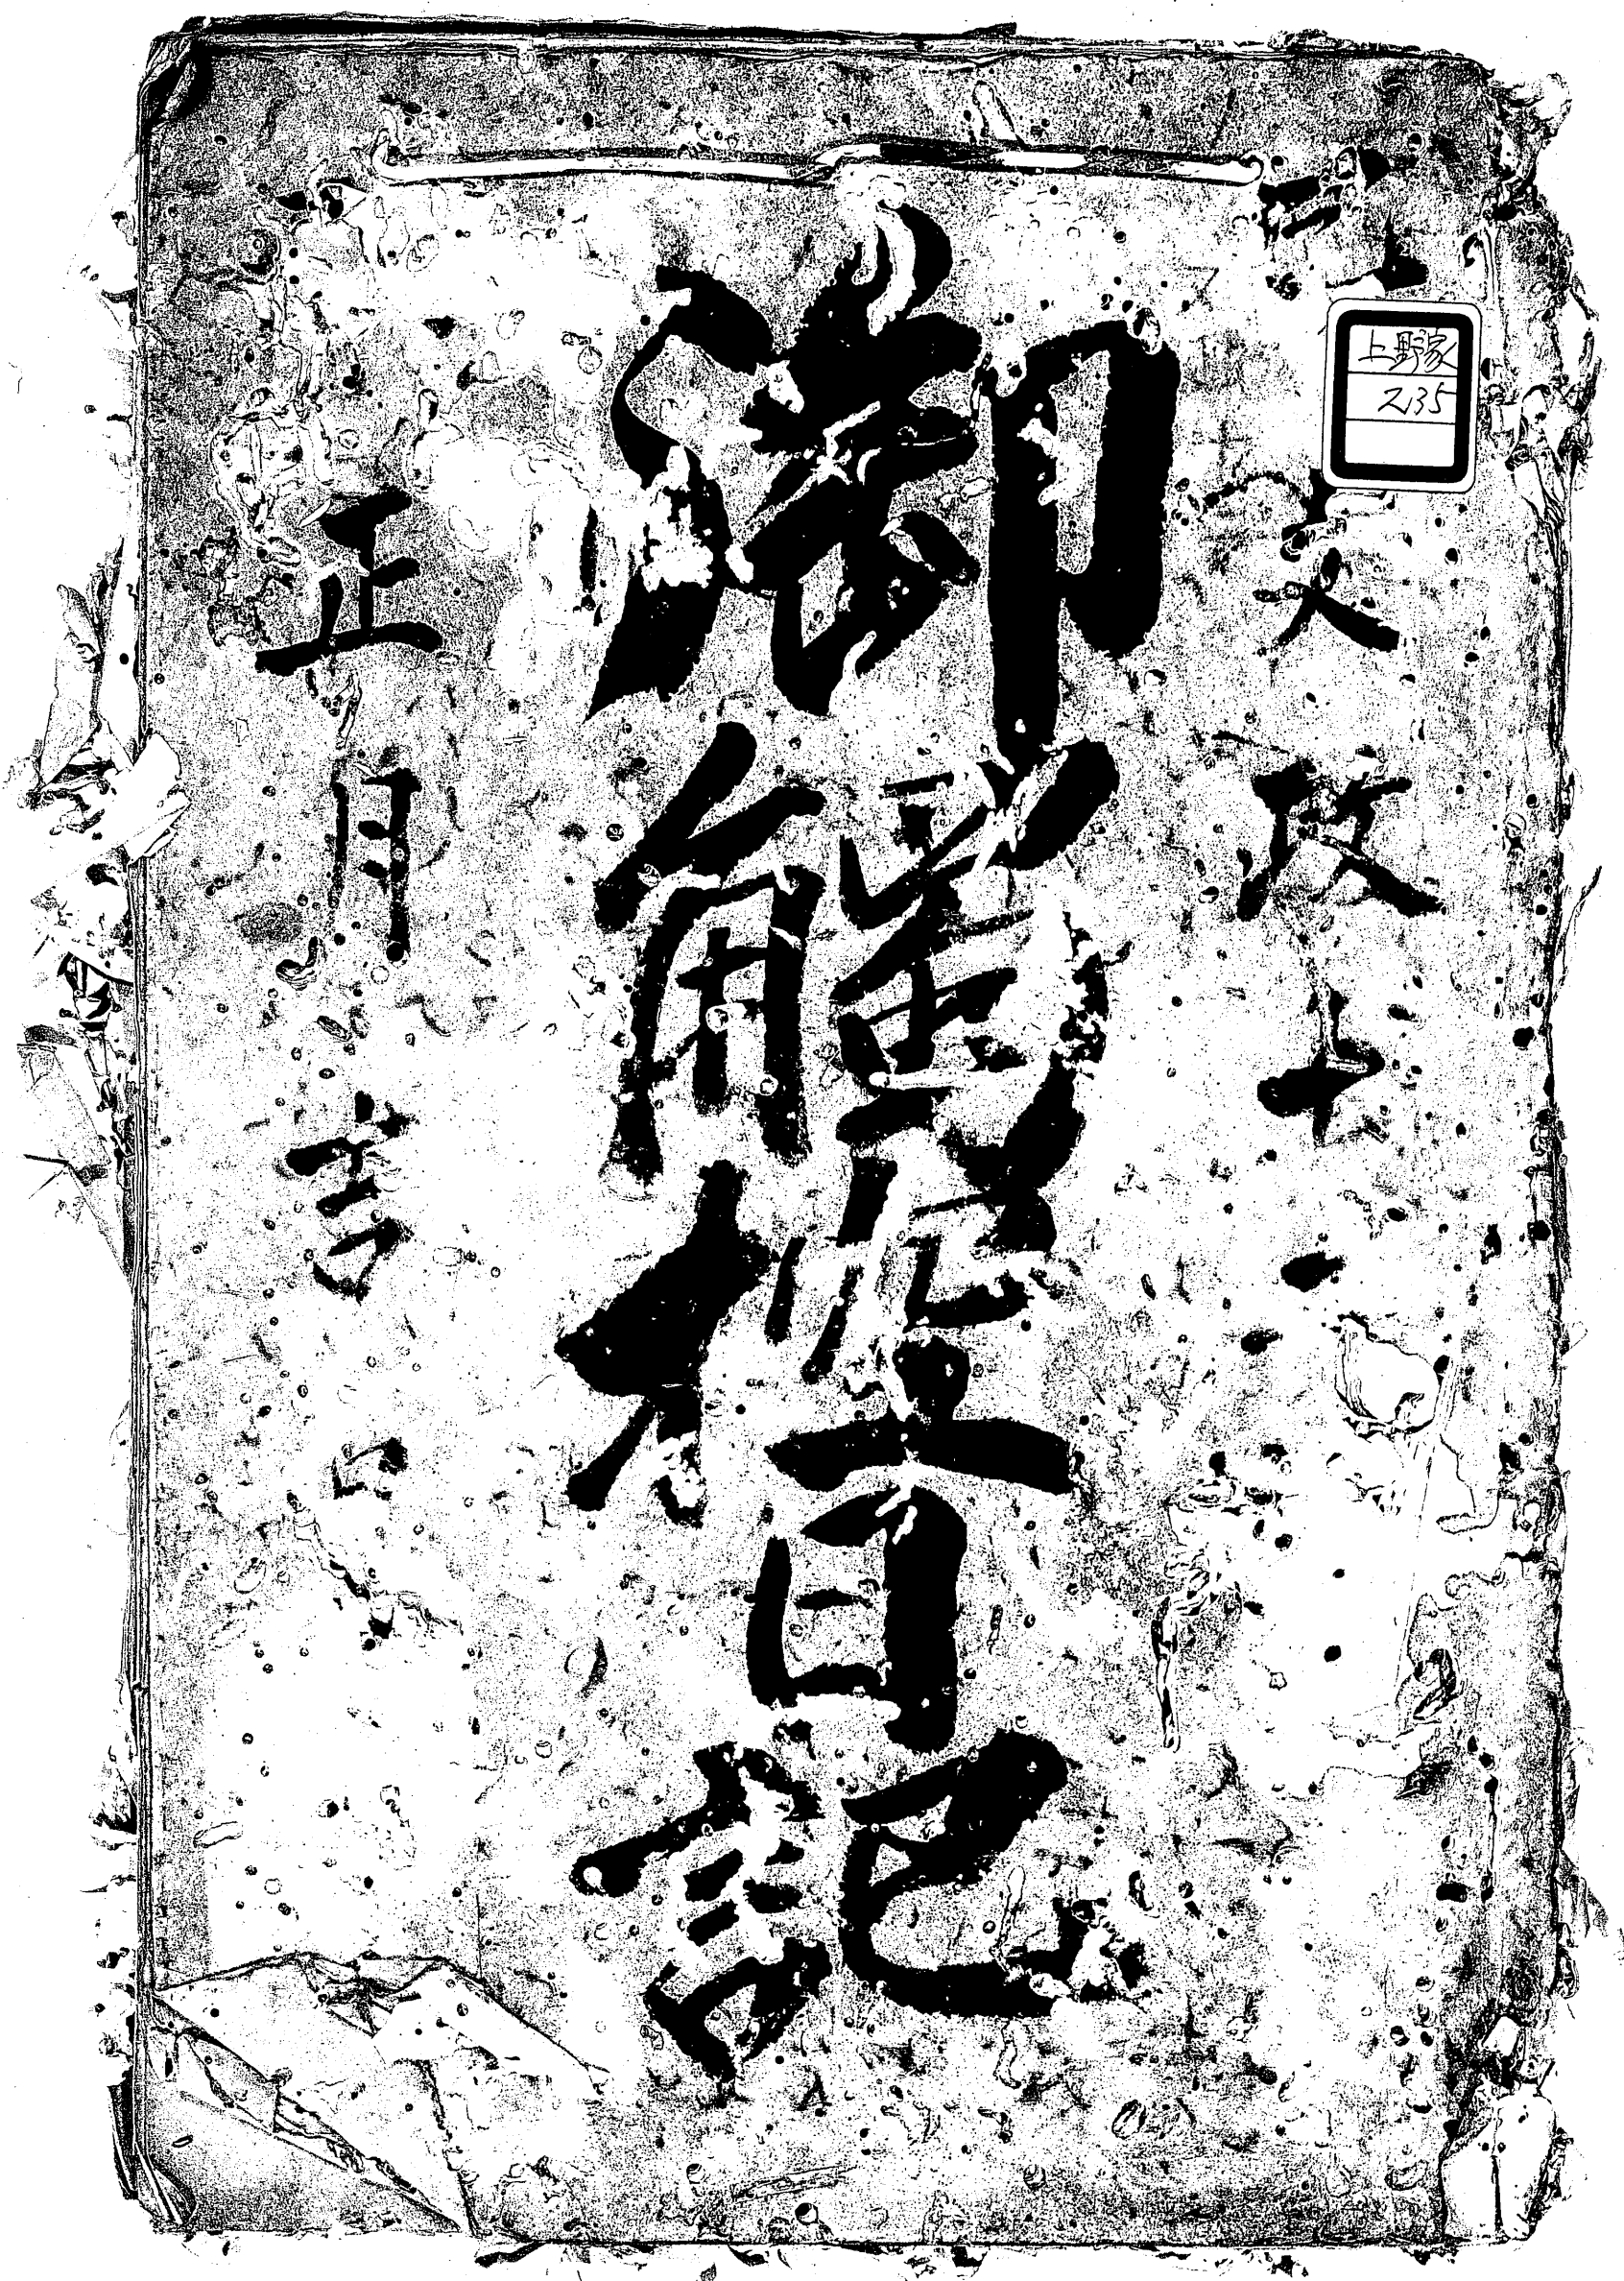 上野家
235
文政十
御觸控日記
正月吉日